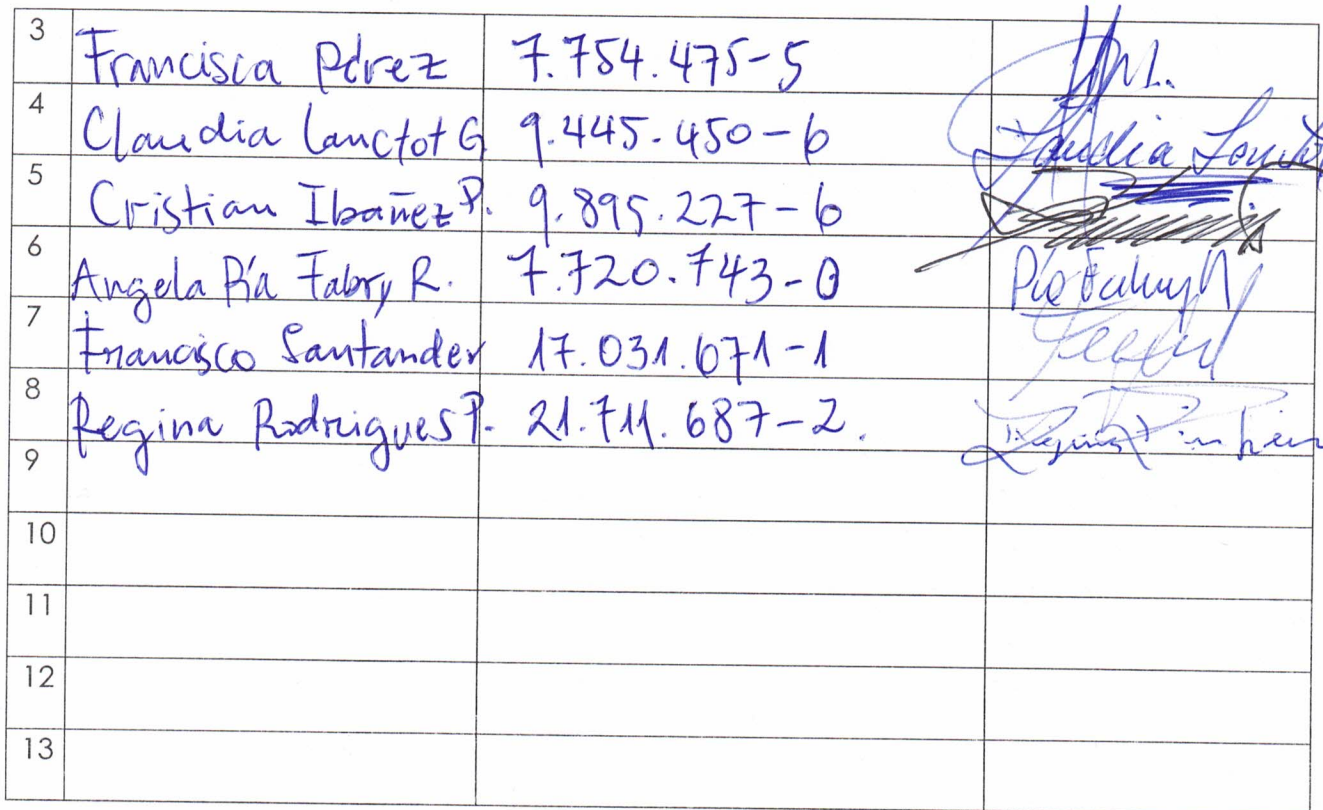 3 Francisca Pérez 7.754.475-5
4 Claudia Lanctot G 9.445.450-6 Claudia
5 Cristian Ibañez P. 9.895.227-6
6 Angela Pía Fabry R. 7.720.743-0 Pía Fabry R
7 Francisco Santander 17.031.671-1
8 Regina Rodrigues P. 21.711.687-2. Regina
9
10
11
12
13